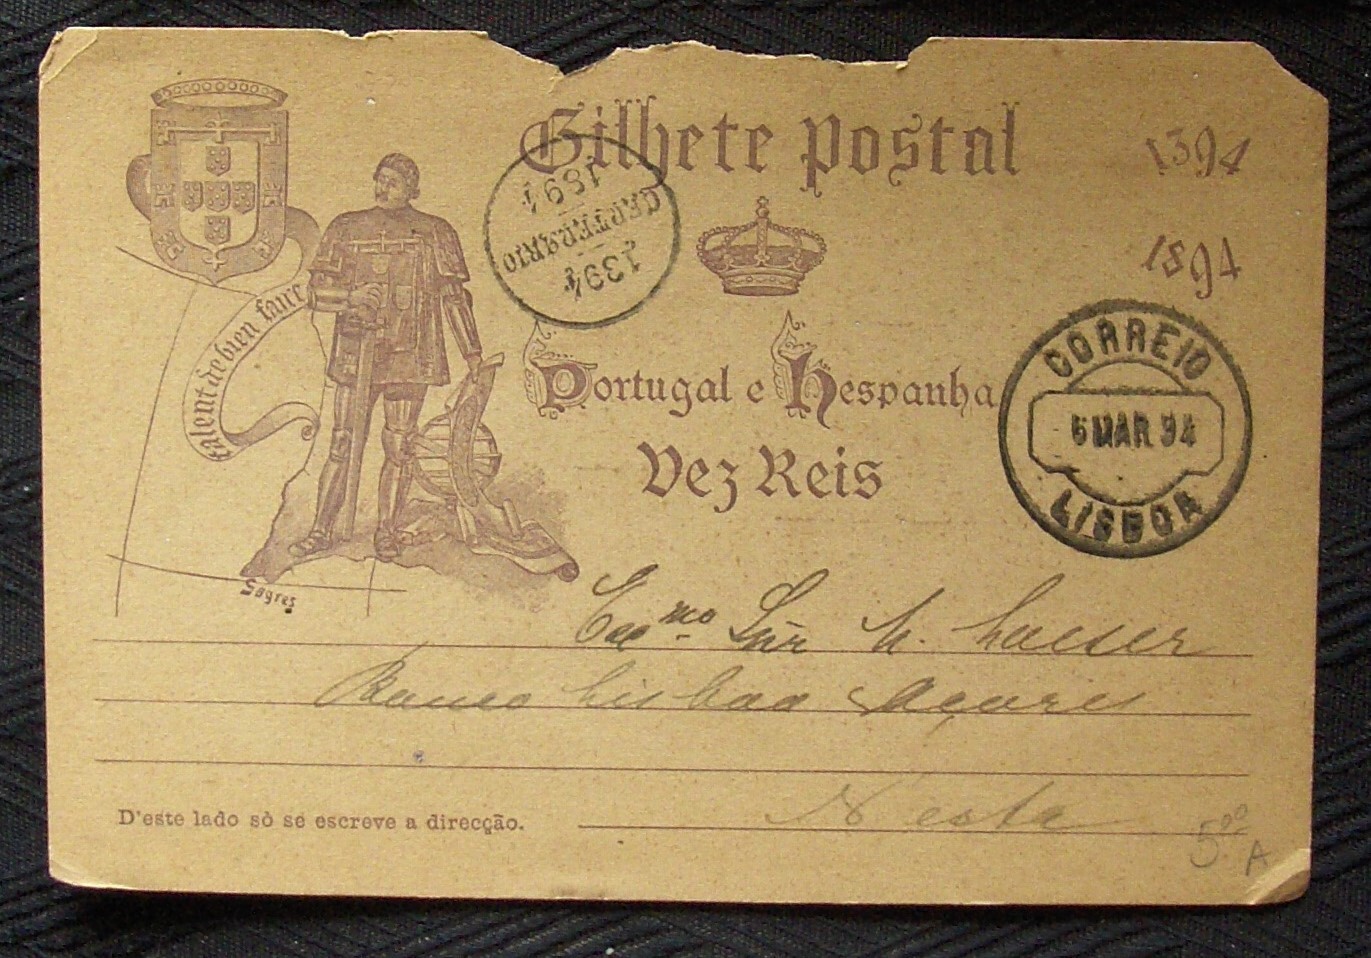 Bilhete postal
1394
1894
talent de bien faire
1394
CENTENARIO
1894
Portugal e Hespanha
Dez Reis
CORREIO
5 MAR. 94
LISBOA
Sagres
Exmo Snr
Banco Lisboa Açores
N'esta
D'este lado só se escreve a direcção.
500
A